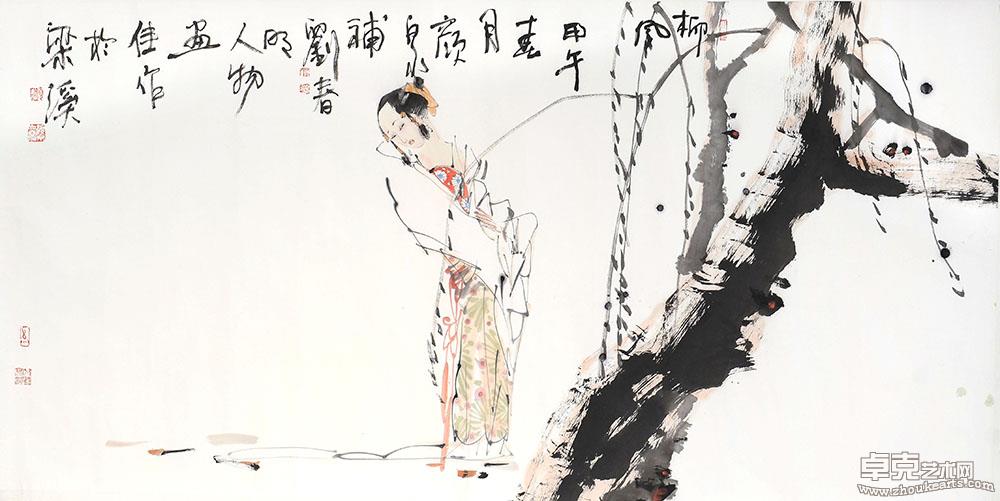 柳
風
甲午
春
月
顏
泉
補
劉春
明
人物
畫
佳作
於
梁溪
卓克艺术网
www.zhoukearts.com